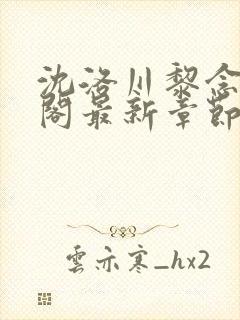 沈洛川黎念
閣最新章節
雲亦寒_hx2